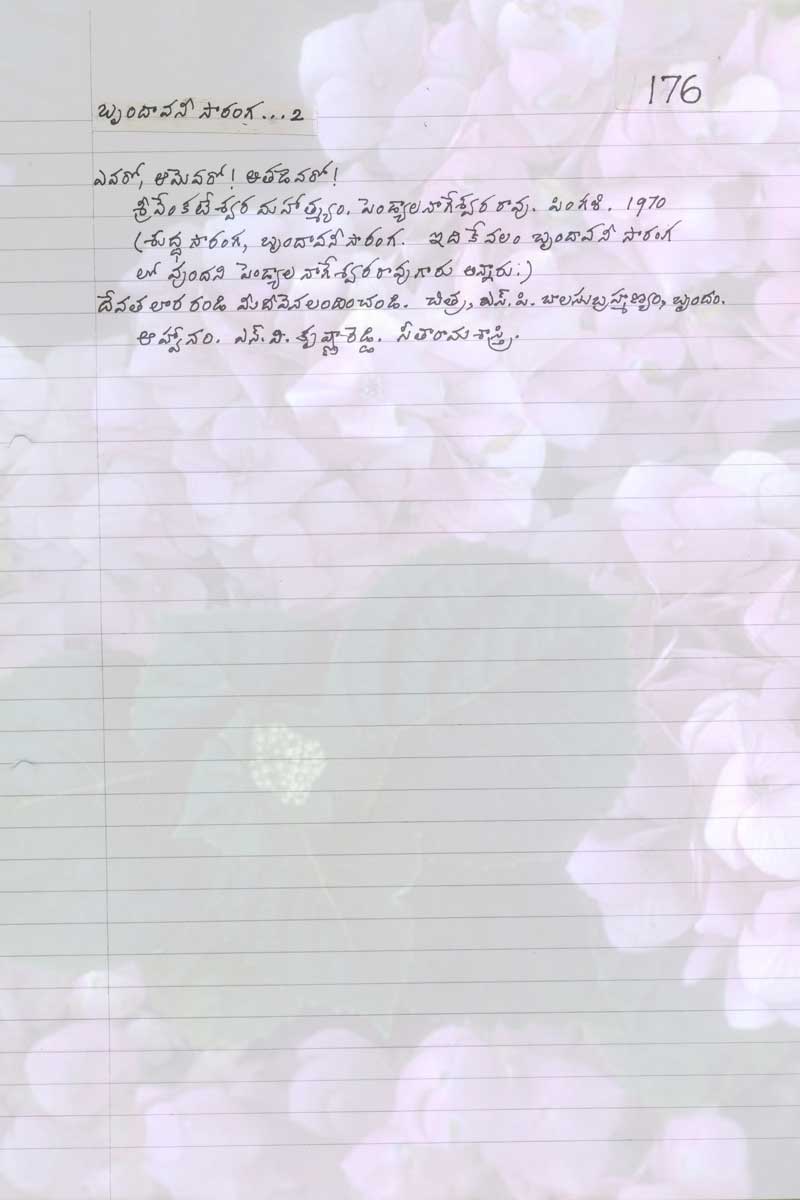 176
బృందావని సారంగ... 2
ఎవరో, ఆమెవరో! అతడెవరో!
శ్రీ వేంకటేశ్వర మహాత్మ్యం. పెండ్యాల నాగేశ్వర రావు. పింగళి. 1970
(శుద్ధ సారంగ, బృందావనీ సారంగ. ఇది కేవలం బృందావనీ సారంగ
లో వుందని పెండ్యాల నాగేశ్వరరావుగారు అన్నారు:)
దేవతలారా రండి మీదీవెనలందించండి. చిత్ర, ఎస్.పి. బాలసుబ్రహ్మణ్యం, బృందం.
ఆహ్వానం. ఎస్.వి. కృష్ణారెడ్డి. సీతారామశాస్త్రి.